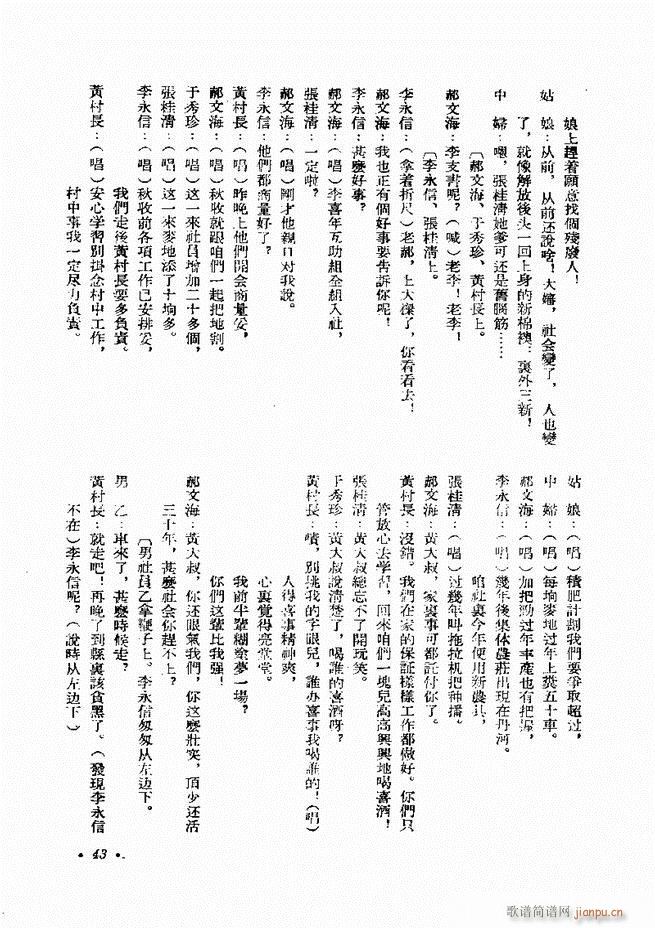 娘上趕着願意找個殘廢人！
姑　娘：从前，从前还說啥！大嬸，社会變了，人也變
了，就像解放後头一回上身的新棉襖：裏外三新！
中　婦：嗯，張桂清她爹可还是舊腦筋……
〔郝文海、于秀珍、黃村長上。
郝文海：李支書呢？（喊）老李！老李！
〔李永信、張桂清上。
李永信：（拿着折尺）老郝，上大樑了，你看看去！
郝文海：我也正有個好事要告訴你呢！
李永信：甚麼好事？
郝文海：（唱）李喜年互助組全組入社，
張桂清：一定啦？
郝文海：（唱）剛才他親口对我說。
李永信：他們都商量好了？
黃村長：（唱）昨晚上他們開会商量妥，
郝文海：（唱）秋收就跟咱們一起把地割。
于秀珍：（唱）这一來社員增加二十多個，
張桂清：（唱）这一來麥地添了十垧多。
李永信：（唱）秋收前各項工作已安排妥，
我們走後黃村長要多負責。
黃村長：（唱）安心学習別掛念村中工作，
村中事我一定尽力負責。
姑　娘：（唱）積肥計划我們要爭取超过，
中　婦：（唱）每垧麥地过年上糞五十車。
郝文海：（唱）加把勁过年丰產也有把握，
李永信：（唱）幾年後集体農莊出現在丹河。
咱社裏今年便用新農具，
張桂清：（唱）过幾年叫拖拉机把种播。
郝文海：黃大叔，家裏事可都託付你了。
黃村長：沒錯。我們在家的保証樣樣工作都做好。你們只
管放心去学習，回來咱們一塊兒高高興興地喝喜酒！
張桂清：黃大叔總忘不了開玩笑。
于秀珍：黃大叔說清楚了，喝誰的喜酒呀？
黃村長：嘖，別挑我的字眼兒，誰办喜事我喝誰的！（唱）
人得喜事精神爽，
心裏覺得亮堂堂。
我前半輩糊塗夢一場，
你們这輩比我强！
郝文海：黃大叔，你还眼氣我們，你这麼壯实，頂少还活
三十年，甚麼社会你趕不上？
〔男社員乙拿鞭子上。李永信匆匆从左边下。
男　乙：車來了，甚麼時候走？
黃村長：就走吧！再晚了到縣裏該貪黑了。（發現李永信
不在）李永信呢？（說時从左边下）
· 43 ·
歌谱简谱网 jianpu.cn